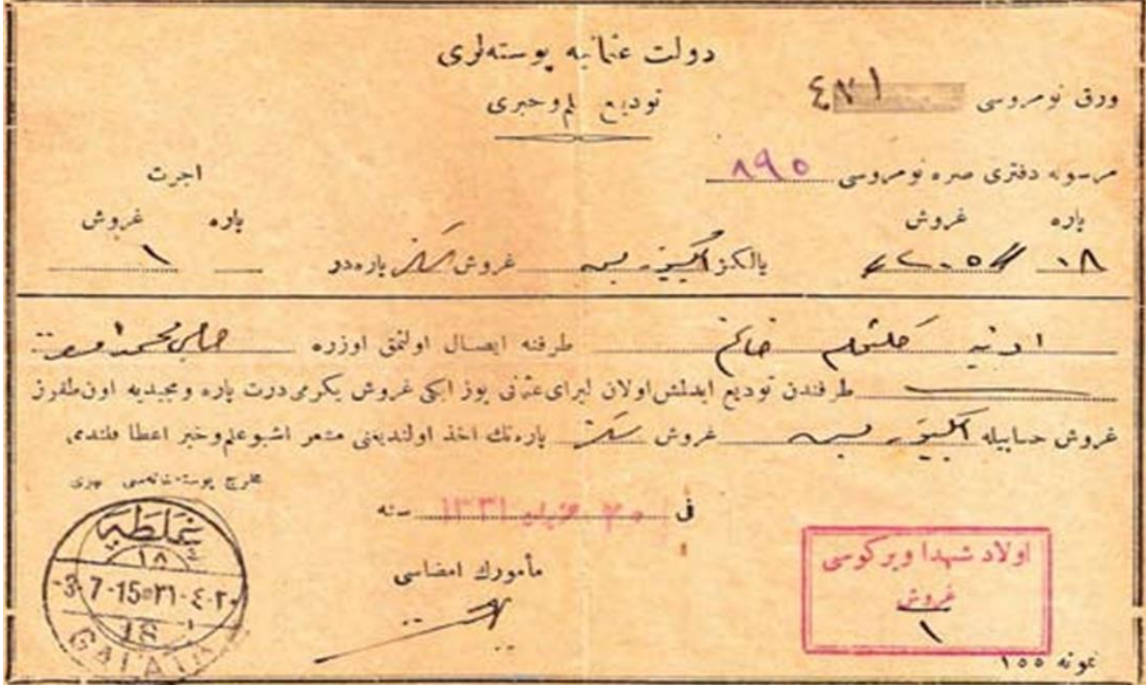 دولت عثمانیه پوسته‌لری
تودیع علم و خبری
ورق نومروسی ٤٧١
مرسوله دفتری صره نومروسی ٨٩٥
اجرت
پاره غروش
پاره غروش
٠٨
یالكز غروش سكز پاره‌در
١
طرفنه ایصال اولنمق اوزره
طرفندن تودیع ایدلمش اولان لیرای عثمانی یوز ایكی غروش یكرمی درت پاره و مجیدیه اون طقوز
غروش حسابیله غروش سكز پاره‌نك اخذ اولندیغنی مشعر اشبو علم و خبر اعطا قلندی
مخرج پوسته‌خانه‌سی مهری
فی ٢٠ حزیران ١٣٣١ سنه
مأمورك امضاسی
غلطه
١٨
-3-7-15 ٣١-٤-٢٠
18
GALATA
اولاد شهدا ویركوسی
غروش
١
نمونه ١٥٥